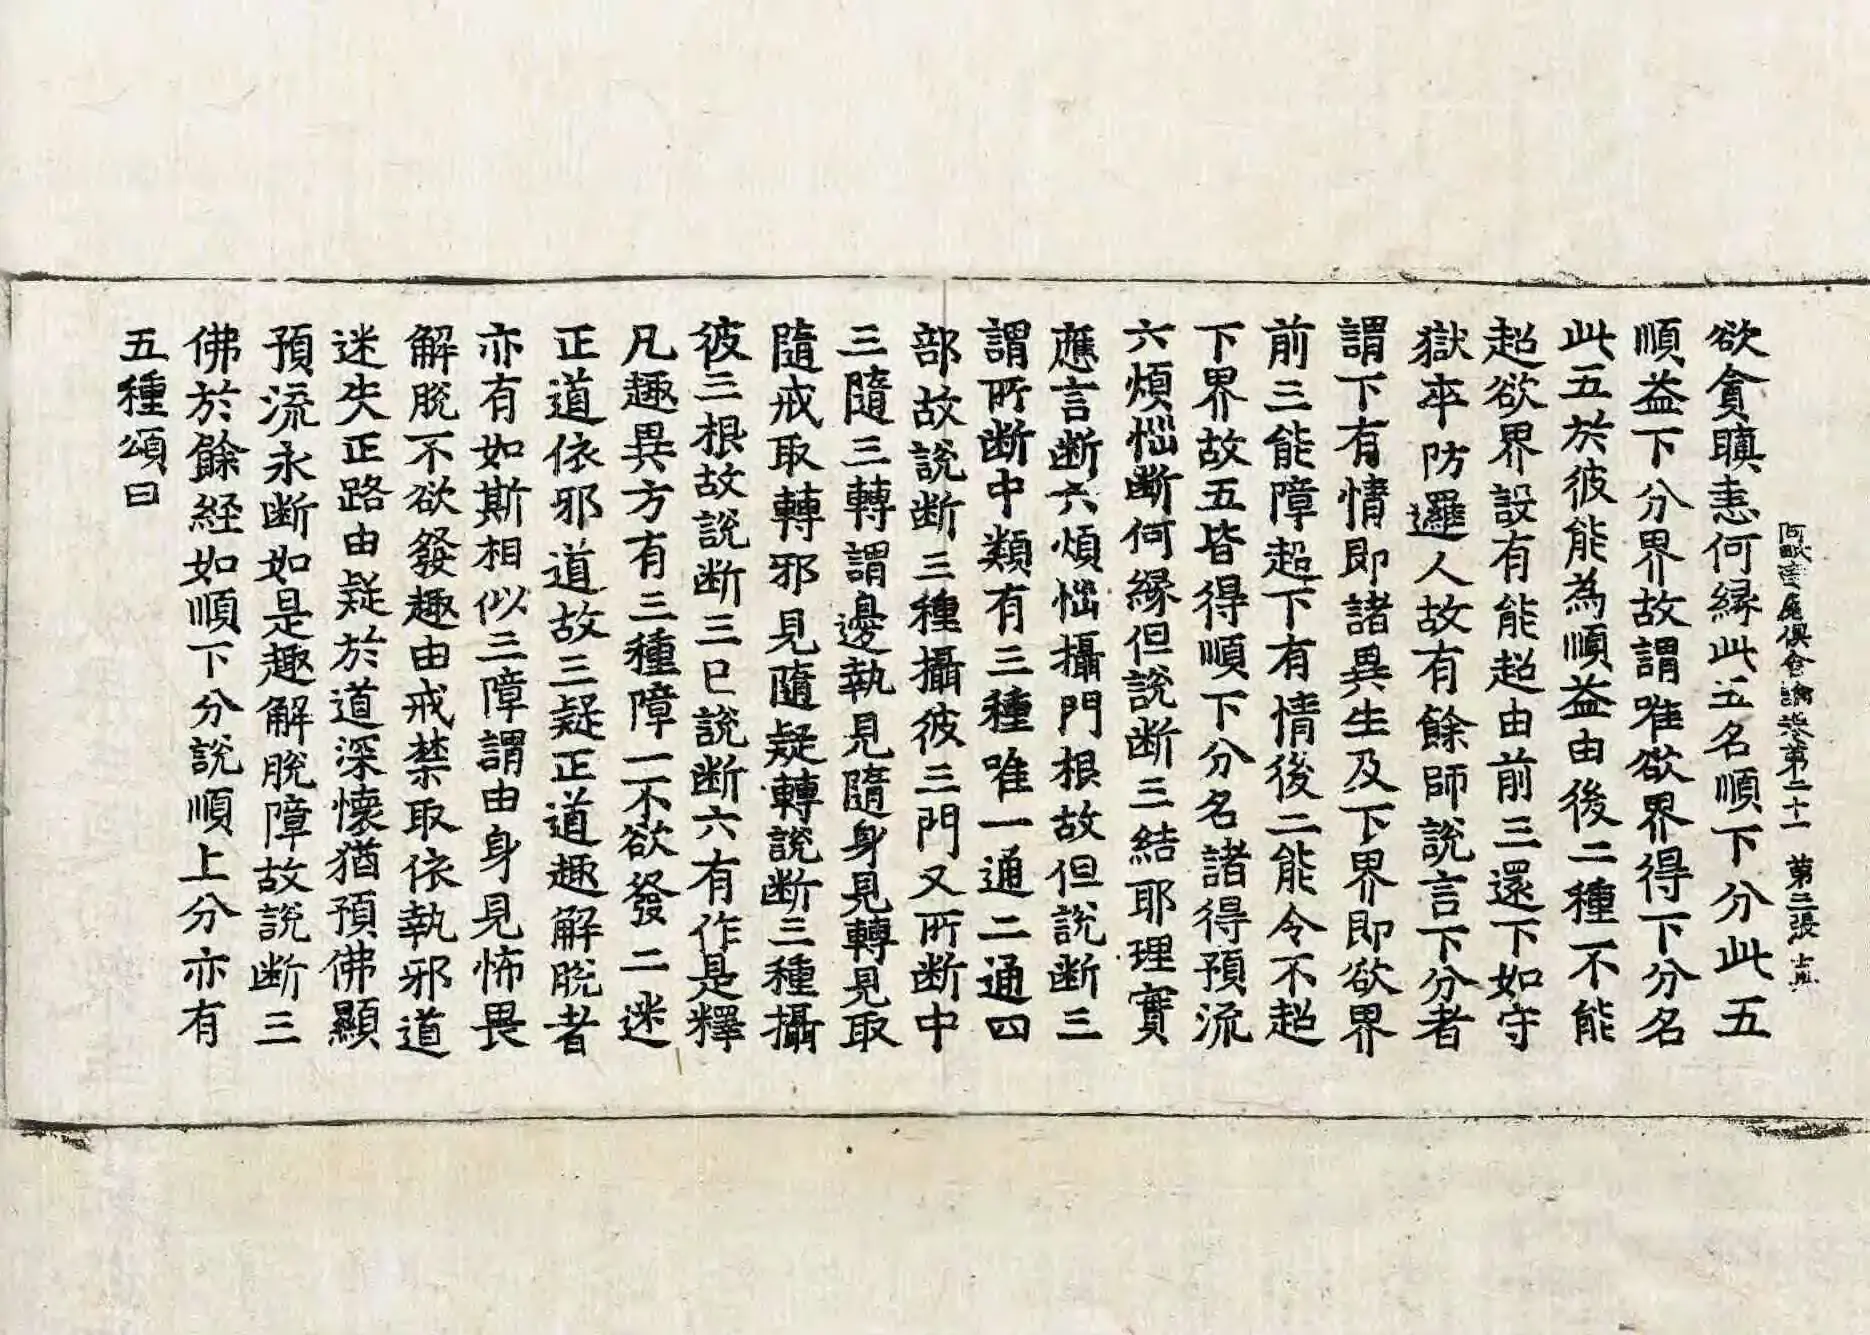 阿毗達磨俱舍論卷第二十一 第三張 典
欲貪瞋恚何緣此五名順下分此五
順益下分界故謂唯欲界得下分名
此五於彼能為順益由後二種不能
超欲界設有能超由前三還下如守
獄卒防邏人故有餘師說言下分者
謂下有情即諸異生及下界即欲界
前三能障超下有情後二能令不超
下界故五皆得順下分名諸得預流
六煩惱斷何緣但說斷三結耶理實
應言斷六煩惱攝門根故但說斷三
謂所斷中類有三種唯一通二通四
部故說斷三種攝彼三門又所斷中
三隨三轉謂邊執見隨身見轉見取
隨戒取轉邪見隨疑轉說斷三種攝
彼三根故說斷三已說斷六有作是釋
凡趣異方有三種障一不欲發二迷
正道依邪道故三疑正道趣解脫者
亦有如斯相似三障謂由身見怖畏
解脫不欲發趣由戒禁取依執邪道
迷失正路由疑於道深懷猶預佛顯
預流永斷如是趣解脫障故說斷三
佛於餘経如順下分說順上分亦有
五種頌曰